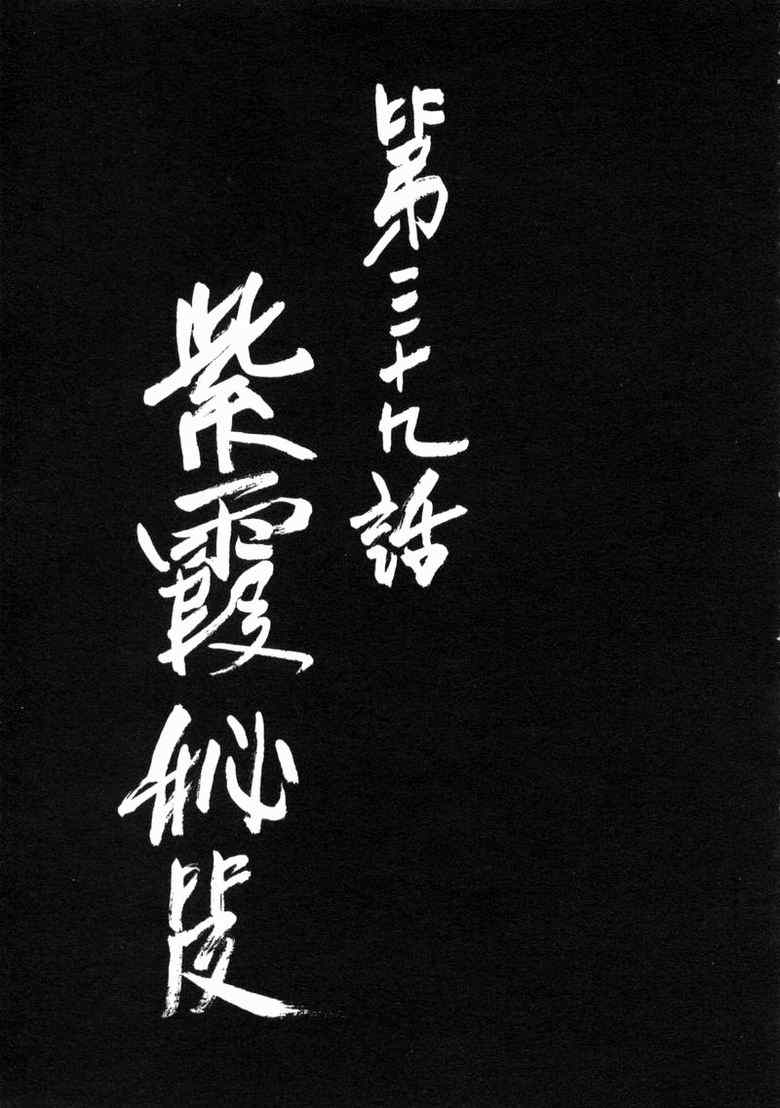 第三十九話
紫霞秘笈